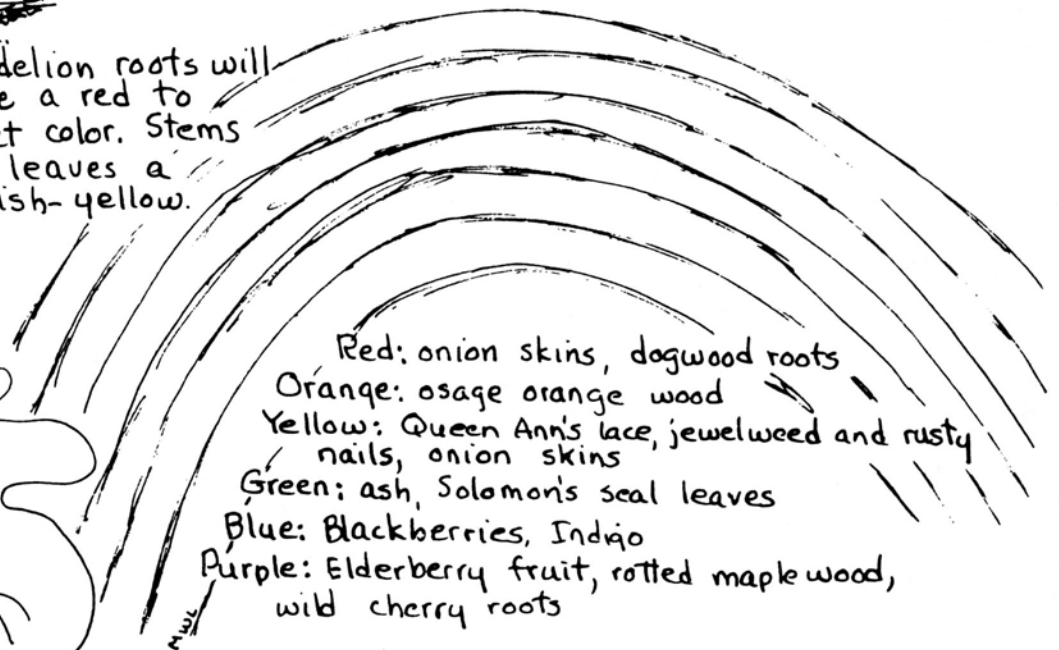 delion roots will
e a red to
et color. Stems
leaves a
ish-yellow.
Red: onion skins, dogwood roots
Orange: osage orange wood
Yellow: Queen Ann's lace, jewelweed and rusty
nails, onion skins
Green: ash, Solomon's seal leaves
Blue: Blackberries, Indigo
Purple: Elderberry fruit, rotted maple wood,
wild cherry roots
MWL